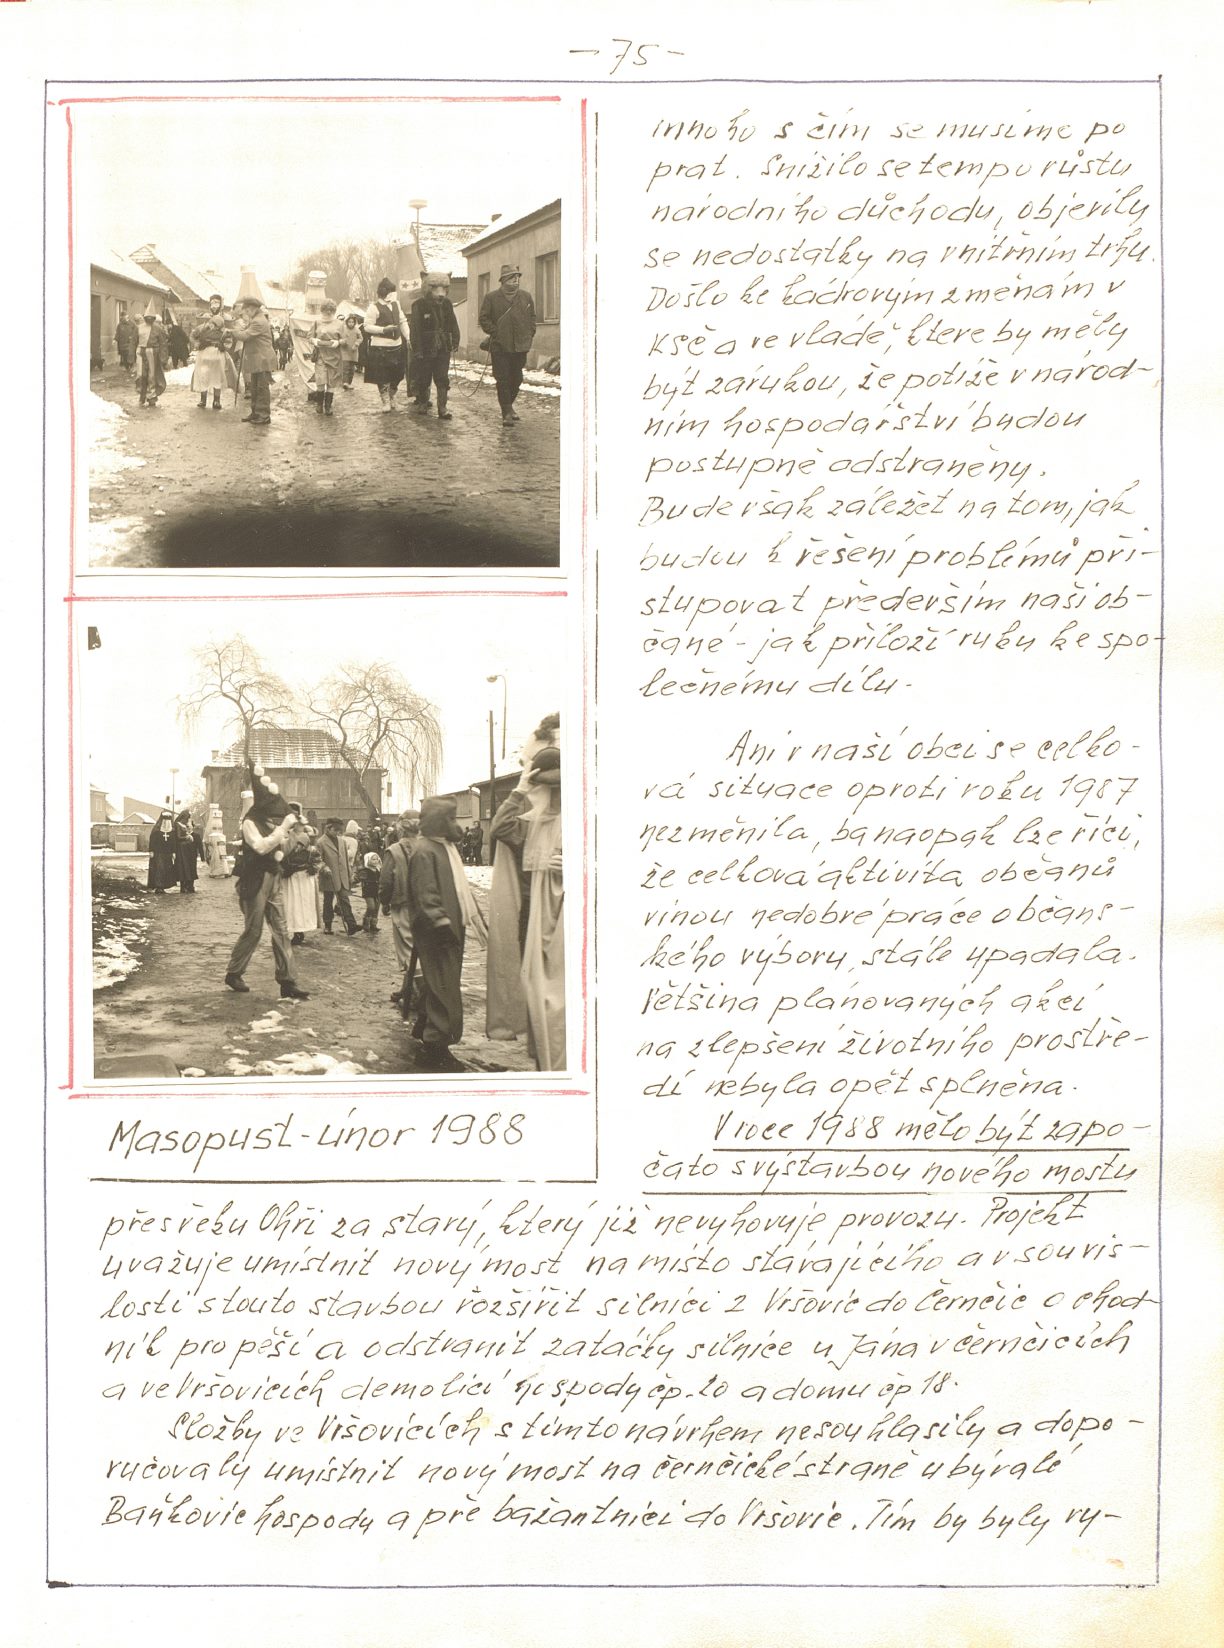 - 75 -
mnoho s čím se musíme po
prat. Snížilo se tempo růstu
národního důchodu, objevily
se nedostatky na vnitřním trhu.
Došlo ke kádrovým změnám v
KSČ a ve vládě, které by měly
být zárukou, že potíže v národ-
ním hospodářství budou
postupně odstraněny.
Bude však záležet na tom, jak
budou k řešení problémů při-
stupovat především naši ob-
čané - jak přiloží ruku ke spo-
lečnému dílu.
Ani v naší obci se celko-
vá situace oproti roku 1987
nezměnila, ba naopak lze říci,
že celková aktivita občanů
vinou nedobré práce občans-
kého výboru, stále upadala.
Většina plánovaných akcí
na zlepšení životního prostře-
dí nebyla opět splněna.
V roce 1988 mělo být zapo-
čato s výstavbou nového mostu
Masopust - únor 1988
přes řeku Ohři za starý, který již nevyhovuje provozu. Projekt
uvažuje umístnit nový most na místo stávajícího a v souvis-
losti s touto stavbou rozšířit silnici z Vršovic do Černčic o chod-
ník pro pěší a odstranit zatáčky silnice u Jána v Černčicích
a ve Vršovicích demolicí hospody čp. 20 a domu čp 18.
Složky ve Vršovicích s tímto návrhem nesouhlasily a dopo-
ručovaly umístnit nový most na černčické straně u bývalé
Baňkovic hospody a pře bažantnici do Vršovic. Tím by byly vy-